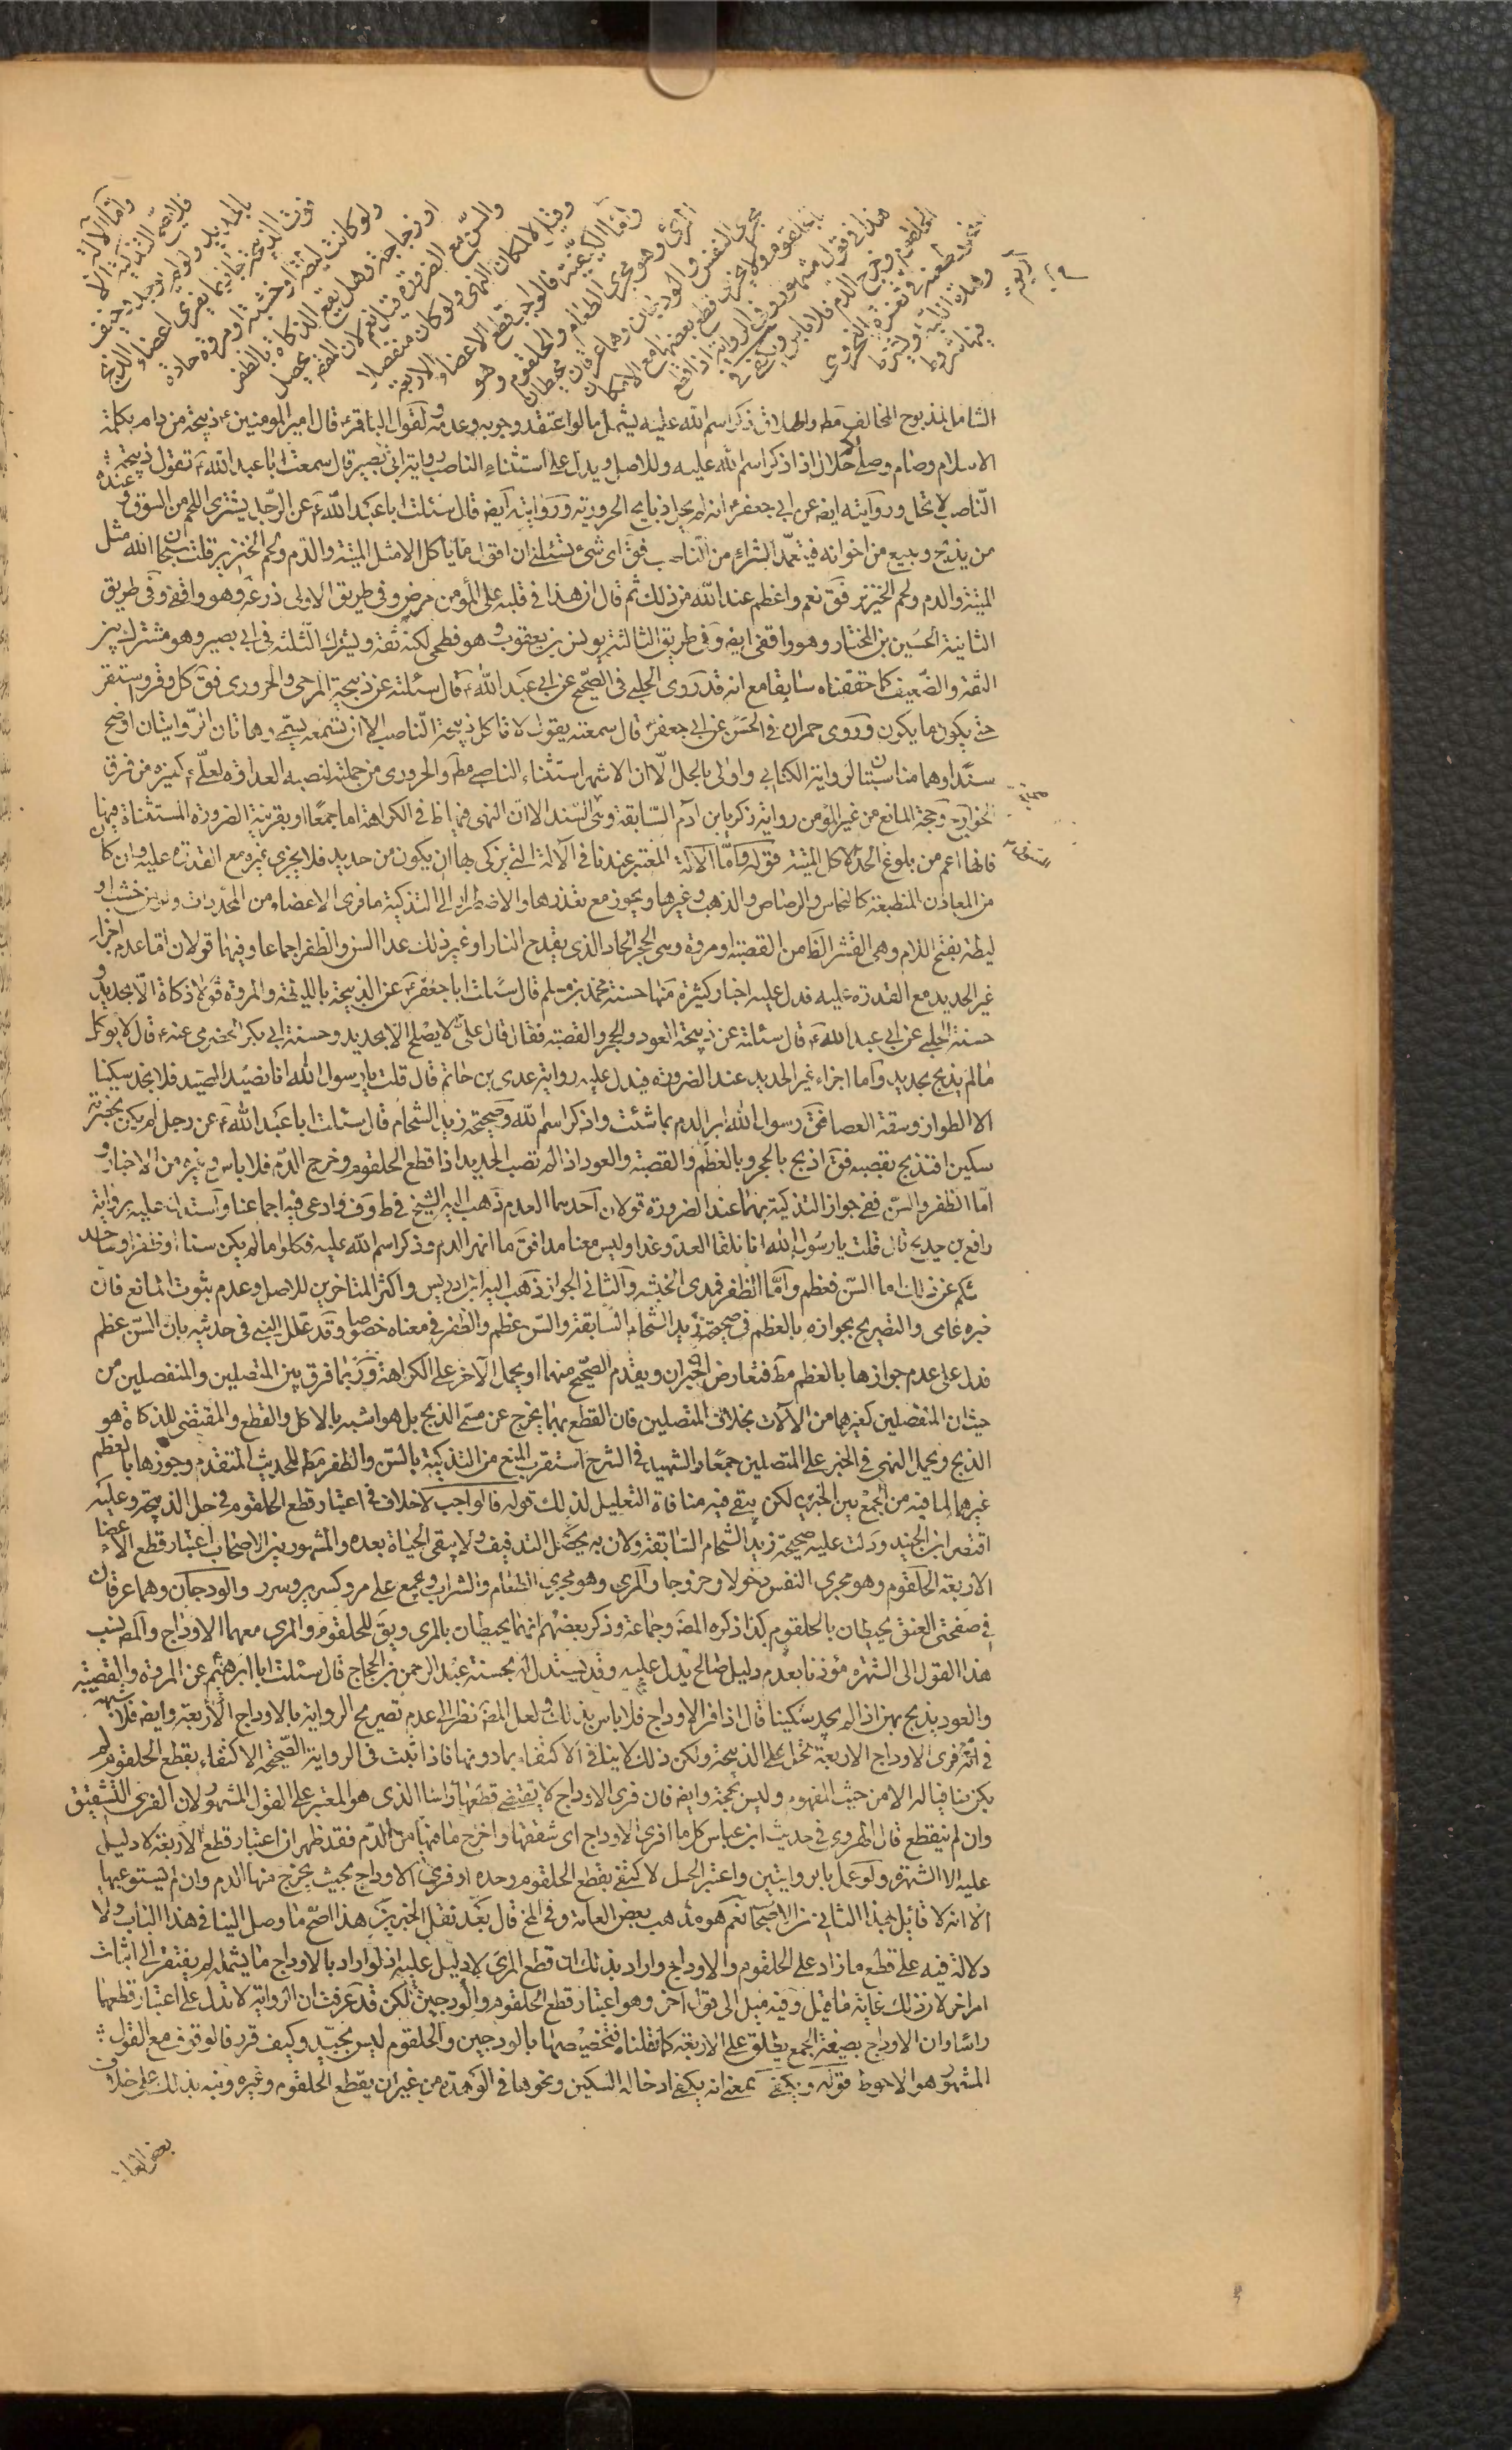 واما الآلة
فلا تصح التذكية الا
بالحديد ولو لم يوجد وخيف
فوت الذبيحة جاز بما يفرى اعضاء الذبح
ولو كانت ليطة او خشبة او مروة حادة
او زجاجة وهل يقع الذكاة بالظفر
والسن مع الضرورة قيل نعم لان المقص يحصل
وقيل لا لمكان النهى ولو كان منفصلا
واما الكيفية فالواجب قطع الاعضاء الاربعة
المرئ وهو مجرى الطعام والحلقوم وهو
مجرى النفس والودجان وهما عرقان محيطان
بالحلقوم ولا يجزى قطع بعضها مع الامكان
هذا فى قول مشهور وفى الرواية اذا قطع
الحلقوم وخرج الدم فلا باس ويكفى فى
طعنه فى ثغرة النحر
وهدة اللبة ويشترط
فيها شروط
اربعة
الشامل لمذبوح المخالف مط واطلاق ذكر اسم الله عليه يشمل ما لو اعتقد وجوبه وعدمه ولقول الباقر ع قال امير المومنين ع ذبيحة من دام بكلمة
الاسلام وصام وصلى لكم حلال اذا ذكر اسم الله عليه وللاصل ويدل على استثناء الناصب رواية ابى بصير قال سمعت ابا عبد الله ع تقول ذبيحة
الناصب لا تحل وروايته ايض عن ابى جعفر ع انه لم يحل ذبايح الحرورية وروايته ايض قال سئلت ابا عبد الله ع عن الرجل يشترى اللحم من السوق وعنده
من يذبح ويبيع من اخوانه فيتعمد الشراء من الناصب فق اى شئ تسئلنى ان اقول ما ياكل الا مثل الميتة والدم ولحم الخنزير قلت سبحان الله مثل
الميتة والدم ولحم الخنزير فق نعم واعظم عند الله من ذلك ثم قال ان هذا فى قلبه على المؤمن مرض وفى طريق الاولى زرعة وهو واقفى وفى طريق
الثانية الحسين بن المختار وهو واقفى ايض وفى طريق الثالثة يونس بن يعقوب وهو فطحى لكنه ثقة ويشترك الثلثة فى ابى بصير وهو مشترك بين
الثقة والضعيف كما حققناه سابقا مع انه قد روى الحلبى فى الصحيح عن ابى عبد الله ع قال سئلته عن ذبيحة المرجى والحرورى فق كل وقر واستقر
حتى يكون ما يكون وروى حمران فى الحسن عن ابى جعفر ع قال سمعته يقول لا تاكل ذبيحة الناصب الا ان تسمعه يسمى وهاتان الروايتان اوضح
سندا وهما مناسبتان لرواية الكتابى واولى بالحل الا ان الاشهر استثناء الناصبى مط والحرورى من جملته لنصبه العداوة لعلى ع كغيره من فرق
الخوارج وحجة المانع من غير المؤمن رواية زكريا بن آدم السابقة وهى السند الا ان النهى فيها ظ فى الكراهة اما جمعا او بقرينة الضرورة المستثناة فيها
فانها اعم من بلوغ الحد لاكل الميتة قوله واما الآلة المعتبر عندنا فى الآلة التى يزكى بها ان يكون من حديد فلا يجزى غيره مع القدرة عليه وان كان
من المعادن المنطبعة كالنحاس والرصاص والذهب وغيرها ويجوز مع تعذرها والاضطرار الى التذكية ما فرى الاعضاء من المحددات ولو من خشب او
ليطة بفتح اللام وهى القشر الظ من القصبة او مروة وهى الحجر الحاد الذى يقدح النار او غير ذلك عدا السن والظفر اجماعا وفيهما قولان اما عدم اجزاء
غير الحديد مع القدرة عليه فدل عليه اخبار كثيرة منها حسنة محمد بن مسلم قال سئلت ابا جعفر ع عن الذبيحة بالليطة والمروة فق لا ذكاة الا بحديد و
حسنة الحلبى عن ابى عبد الله ع قال سئلته عن ذبيحة العود والحجر والقصبة فقال قال على ع لا يصلح الا بحديد وحسنة ابى بكر الحضرمى عنه ع قال لا يوكل
ما لم يذبح بحديد واما اجزاء غير الحديد عند الضرورة فيدل عليه رواية عدى بن حاتم قال قلت يا رسول الله انا نصيد الصيد فلا نجد سكينا
الا الطوار وسقة العصا فق رسول الله امر الدم بما شئت واذكر اسم الله وصحيحة زيد الشحام قال سئلت ابا عبد الله ع عن رجل لم يكن بحضرته
سكين افتذبح بقصبه فق اذبح بالحجر وبالعظم والقصبة والعود اذا لم تصب الحديد اذا قطع الحلقوم وخرج الدم فلا باس وغيره من الاخبار و
اما الظفر والسن ففى جواز التذكية بهما عند الضرورة قولان احدهما العدم ذهب اليه الشيخ فى ط وف وادعى فيه اجماعنا واستدل عليه برواية
رافع بن خديج قال قلت يا رسول الله انا نلقا العدو غدا وليس معنا مدا فق ما انهر الدم وذكر اسم الله عليه فكلوا ما لم يكن سنا او ظفرا وساحد
ثكم عن ذلك اما السن فعظم واما الظفر فمدى الحبشة والثانى الجواز ذهب اليه ابن ادريس واكثر المتاخرين للاصل وعدم ثبوت المانع فان
خبره عامى والتصريح بجوازه بالعظم فى صحيحة زيد الشحام السابقة والسن عظم والظفر فى معناه خصوصا وقد علل النبى فى حديثه بان السن عظم
فدل على عدم جوازها بالعظم مط فتعارض الخبران ويقدم الصحيح منهما او يحمل الآخر على الكراهة وربما فرق بين المتصلين والمنفصلين من
حيث ان المنفصلين كغيرهما من الآلات بخلاف المتصلين فان القطع بهما يخرج عن مسمى الذبح بل هو اشبه بالاكل والقطع والمقتضى للذكاة هو
الذبح ويحمل النهى فى الخبر على المتصلين جمعا والشهيد فى الشرح استقرب المنع من التذكية بالسن والظفر مط للحديث المتقدم وجوزها بالعظم
غيرهما لما فيه من الجمع بين الخبرين لكن يبقى فيه منافاة التعليل لذلك قوله فالواجب لا خلاف فى اعتبار قطع الحلقوم فى حل الذبيحة وعليه
اقتصر ابن الجنيد ودلت عليه صحيحة زيد الشحام السابقة ولان به يحصل التدفيف ولا يبقى الحياة بعده والمشهور بين الاصحاب اعتبار قطع الاعضاء
الاربعة الحلقوم وهو مجرى النفس دخولا وخروجا والمرى وهو مجرى الطعام والشراب ويجمع على مرو كسرير وسرر والودجان وهما عرقان
فى صفحتى العنق يحيطان بالحلقوم كذا ذكره المصنف وجماعة وذكر بعضهم انهما يحيطان بالمرى ويق للحلقوم والمرى معهما الاوداج والمص نسب
هذا القول الى الشهرة مؤذنا بعدم دليل صالح يدل عليه وقد يستدل له بحسنة عبد الرحمن بن الحجاج قال سئلت ابا ابرهيم عن المروة والقصبة
والعود يذبح بهن اذا لم يجد سكينا قال اذا فرى الاوداج فلا باس بذلك ولعل المص نظر الى عدم تصريح الرواية بالاوداج الاربعة وايض فلا شبهة
فى انه فرى الاوداج الاربعة تحل على الذبيحة ولكن ذلك لا ينافى الاكتفاء بما دونها فاذا ثبت فى الرواية الصحيحة الاكتفاء بقطع الحلقوم لم
يكن منافيا له الا من حيث المفهوم وليس بحجة وايض فان فرى الاوداج لا يقتضى قطعها راسا الذى هو المعتبر على القول المشهور لان الفرى التشقيق
وان لم ينقطع قال الهروى فى حديث ابن عباس كل ما افرى الاوداج اى شققها واخرج ما فيها من الدم فقد ظهر ان اعتبار قطع الاربعة لا دليل
عليه الا الشهرة ولو عمل بالروايتين واعتبر الحسن لاكتفى بقطع الحلقوم وحده او فرى الاوداج بحيث يخرج منها الدم وان لم يستوعبها
الا انه لا قائل بهذا الثانى من الاصحاب نعم هو مذهب بعض العامة وفى المخ قال بعد نقل الخبرين هذا اصح ما وصل الينا فى هذا الباب ولا
دلالة فيه على قطع ما زاد على الحلقوم والاوداج واراد بذلك ان قطع المرى لا دليل عليه اذ لو اراد بالاوداج ما يشمله لم يفتقر الى اثبات
امر اخر لان ذلك غاية ما قيل وفيه ميل الى قول اخر وهو اعتبار قطع الحلقوم والودجين لكن قد عرفت ان الرواية لا تدل على اعتبار قطعهما
راسا وان الاوداج بصيغة الجمع يطلق على الاربعة كما نقلناه فتخصيصها بالودجين والحلقوم ليس بجيد وكيف قرر فالوقوف مع القول
المشهور هو الاحوط قوله ويكفى بمعنى انه يكفى ادخال السكين ونحوها فى الوهدة من غير ان يقطع الحلقوم وغيره ونبه بذلك على خلاف
بعض العامة